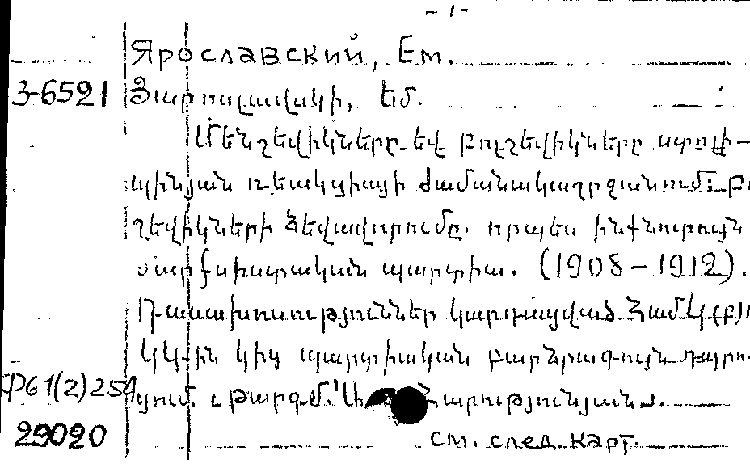 -1-
Ярославский, Ем.
3-6521 Յարոսլավսկի, Եմ.
Մենշեվիկները եվ բոլշեվիկները ստոլի-
պինյան ռեակցիայի ժամանակաշրջանում: Բո
շեվիկների ձեվավորումը. որպես ինքնուրույն
մարքսիստական պարտիա. (1908-1912).
Դասախոսություններ կարդացված Համկ(բ)
ԿԿ-ին կից պարտիական բարձրագույն դպրո-
ФБ1(2)25А ցում. Թարգմ.՝ Հարությունյանս.
29020 см. след. карт.